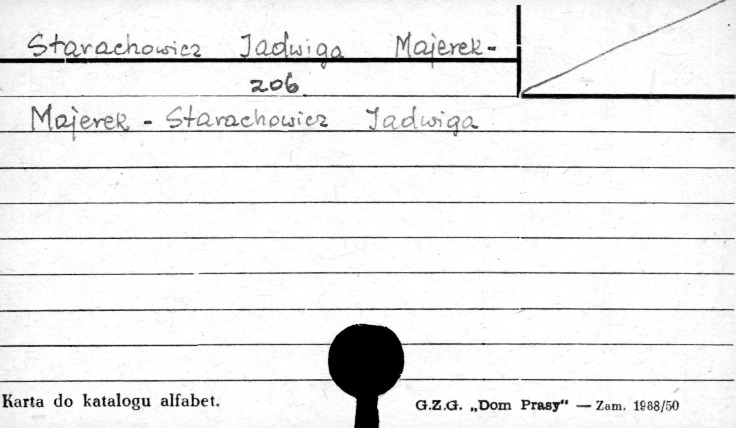 Starachowicz Jadwiga Majerek-
206
Majerek - Starachowicz Jadwiga
Karta do katalogu alfabet.
G.Z.G. „Dom Prasy“ — Zam. 1988/50